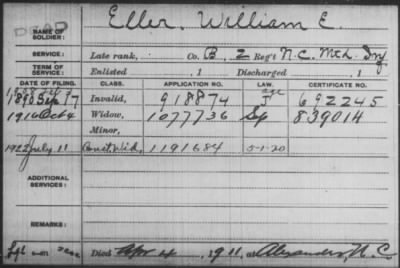 DEAD
Eller, William E.
NAME OF SOLDIER:
SERVICE: Late rank, Co. B, 2 Reg't N.C. Mtd. Inf
TERM OF SERVICE: Enlisted , 1 Discharged , 1
DATE OF FILING. CLASS. APPLICATION NO. LAW. CERTIFICATE NO.
1890 Sep 17 Invalid, 918874 age 692245
1916 Oct 4 Widow, 1077736 839014
Minor,
1922 July 11 Const. Wid, 1191684 5-1-20
ADDITIONAL SERVICES:
REMARKS:
Died Apr 4, 1911, at Alexander, N.C.